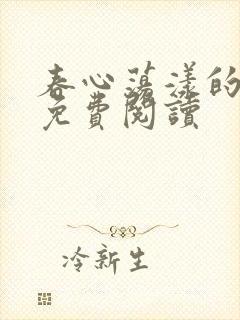 春心蕩漾的
免費閱讀
冷新生